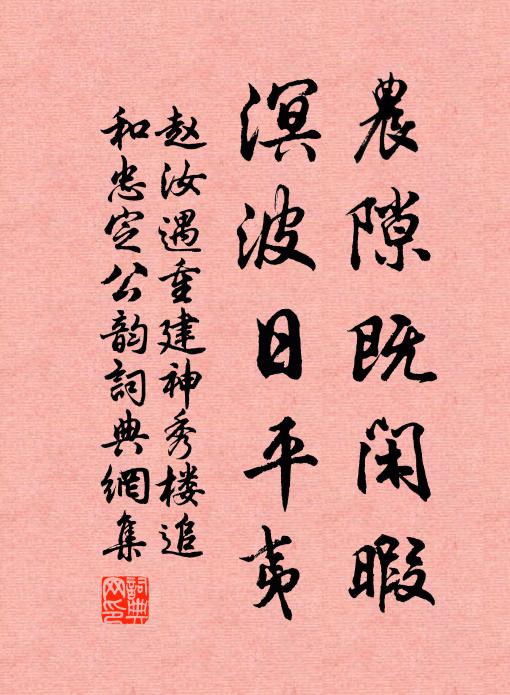 農隙既闲暇
溟波日平夷
赵汝遇重建神秀楼追
和忠定公韵詞典網集
詞典網印